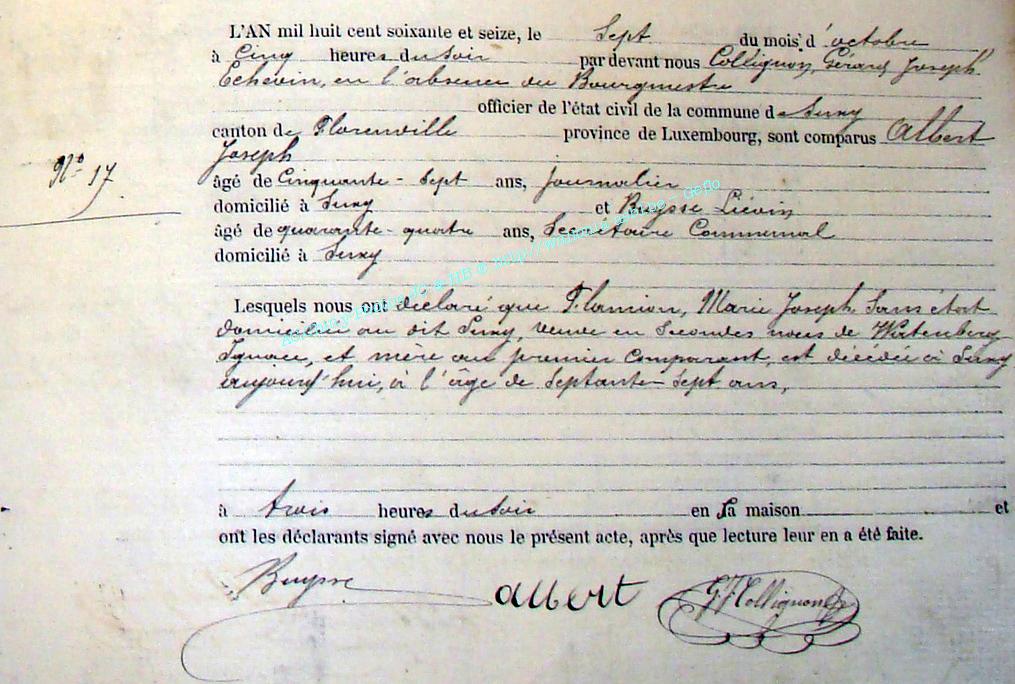 L'AN mil huit cent soixante et seize, le Sept du mois d'octobre
à Cinq heures du soir par devant nous Collignon, Gérard, Joseph
Echevin, en l'absence du Bourgmestre
officier de l'état civil de la commune de Suxy
canton de Florenville province de Luxembourg, sont comparus Albert
Joseph
N° 17
âgé de Cinquante-Sept ans, journalier
domicilié à Suxy et Buysse Liévin
âgé de quarante-quatre ans, Secrétaire Communal
domicilié à Suxy
Lesquels nous ont déclaré que Flamion, Marie Joseph Sans état
domiciliée au dit Suxy, veuve en Secondes noces de Watenberg
Ignace, et mère au premier Comparant, est décédée à Suxy
aujourd'hui, à l'âge de Septante-Sept ans,
à trois heures du soir en sa maison et
ont les déclarants signé avec nous le présent acte, après que lecture leur en a été faite.
Buysse albert GJCollignon